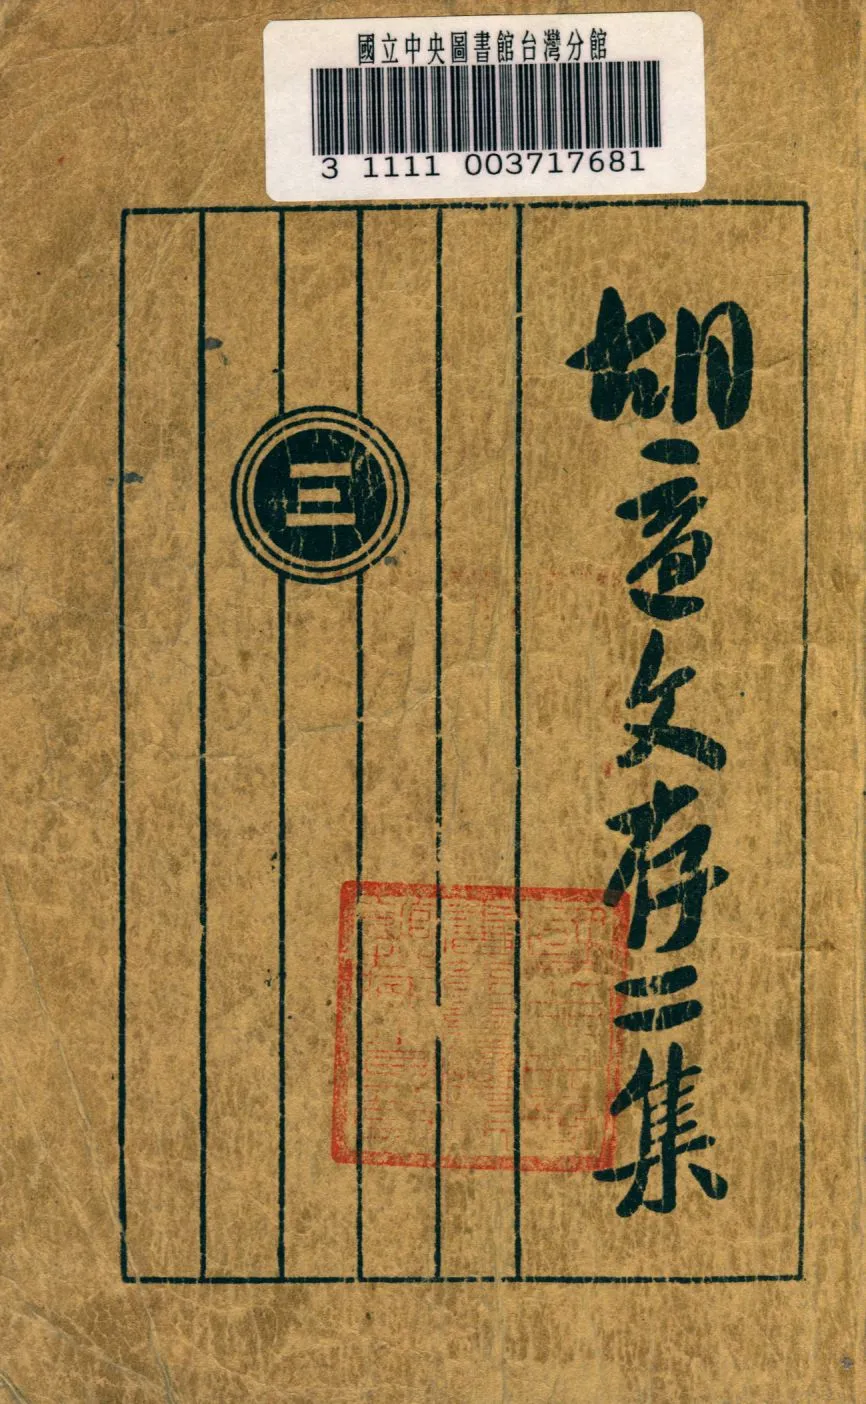 國立中央圖書館台灣分館
3 1111 003717681
胡適文存二集
三